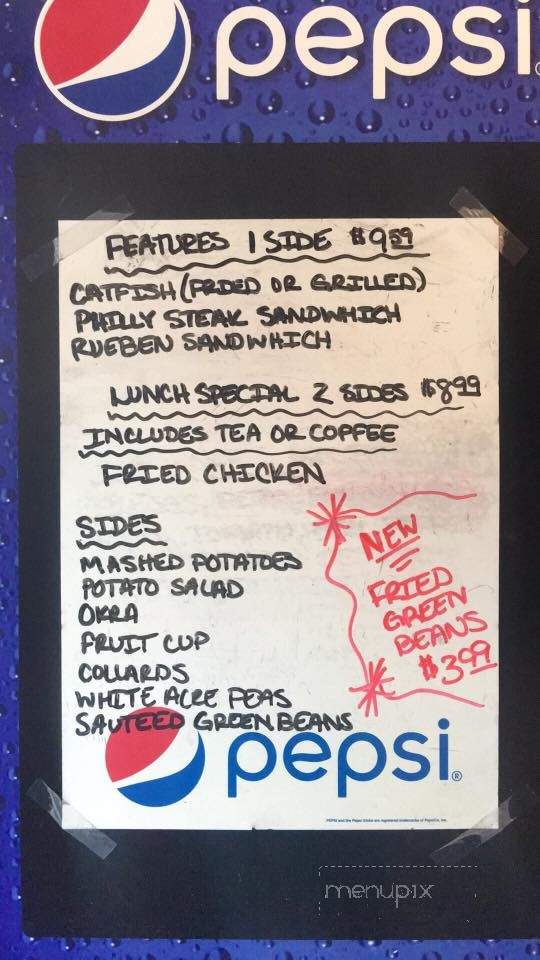 pepsi
FEATURES 1 SIDE $9.59
CATFISH (FRIED OR GRILLED)
PHILLY STEAK SANDWHICH
RUEBEN SANDWHICH
LUNCH SPECIAL 2 SIDES $8.99
INCLUDES TEA OR COFFEE
FRIED CHICKEN
SIDES
MASHED POTATOES
POTATO SALAD
OKRA
FRUIT CUP
COLLARDS
WHITE ACRE PEAS
SAUTEED GREEN BEANS
NEW
FRIED
GREEN
BEANS
$3.99
pepsi®
PEPSI and the Pepsi Globe are registered trademarks of PepsiCo, Inc.
menupix